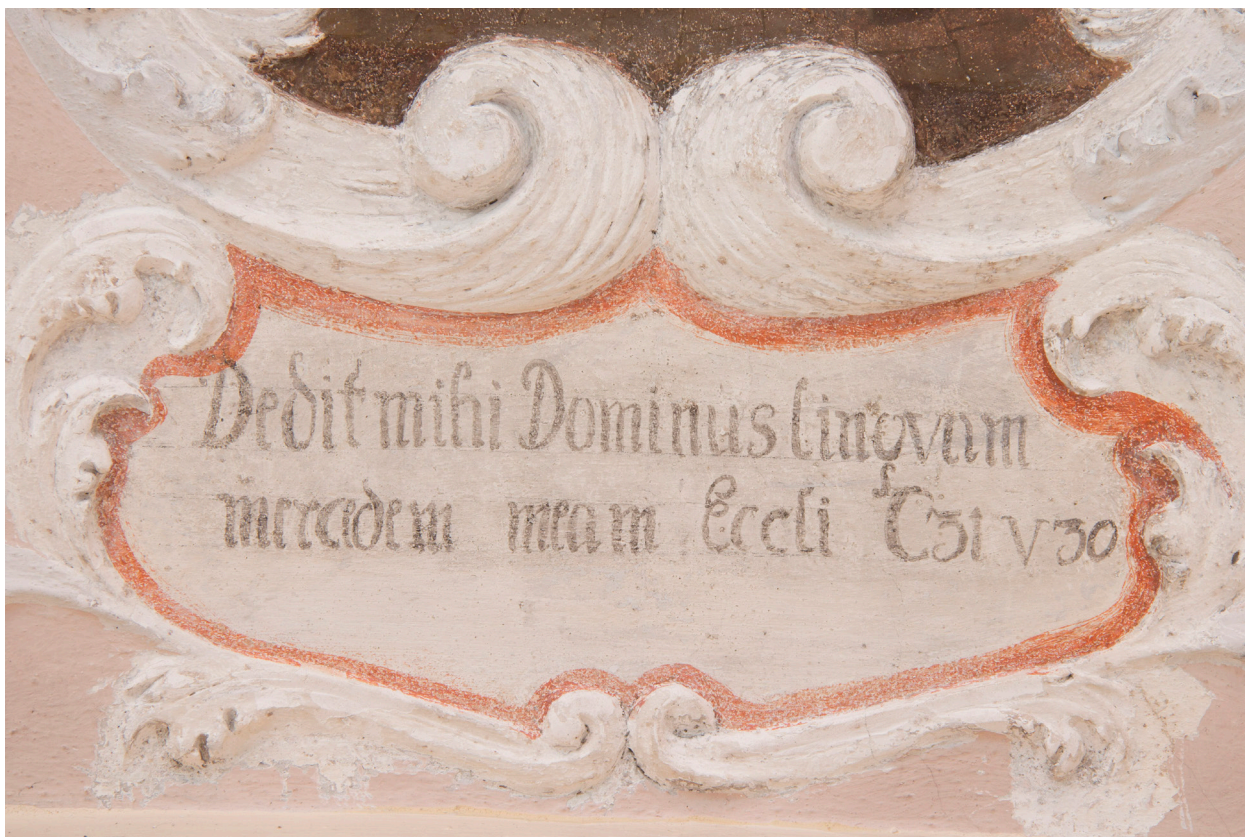 Dedit mihi Dominus lingvam
mercedem meam Eccli C31 V30